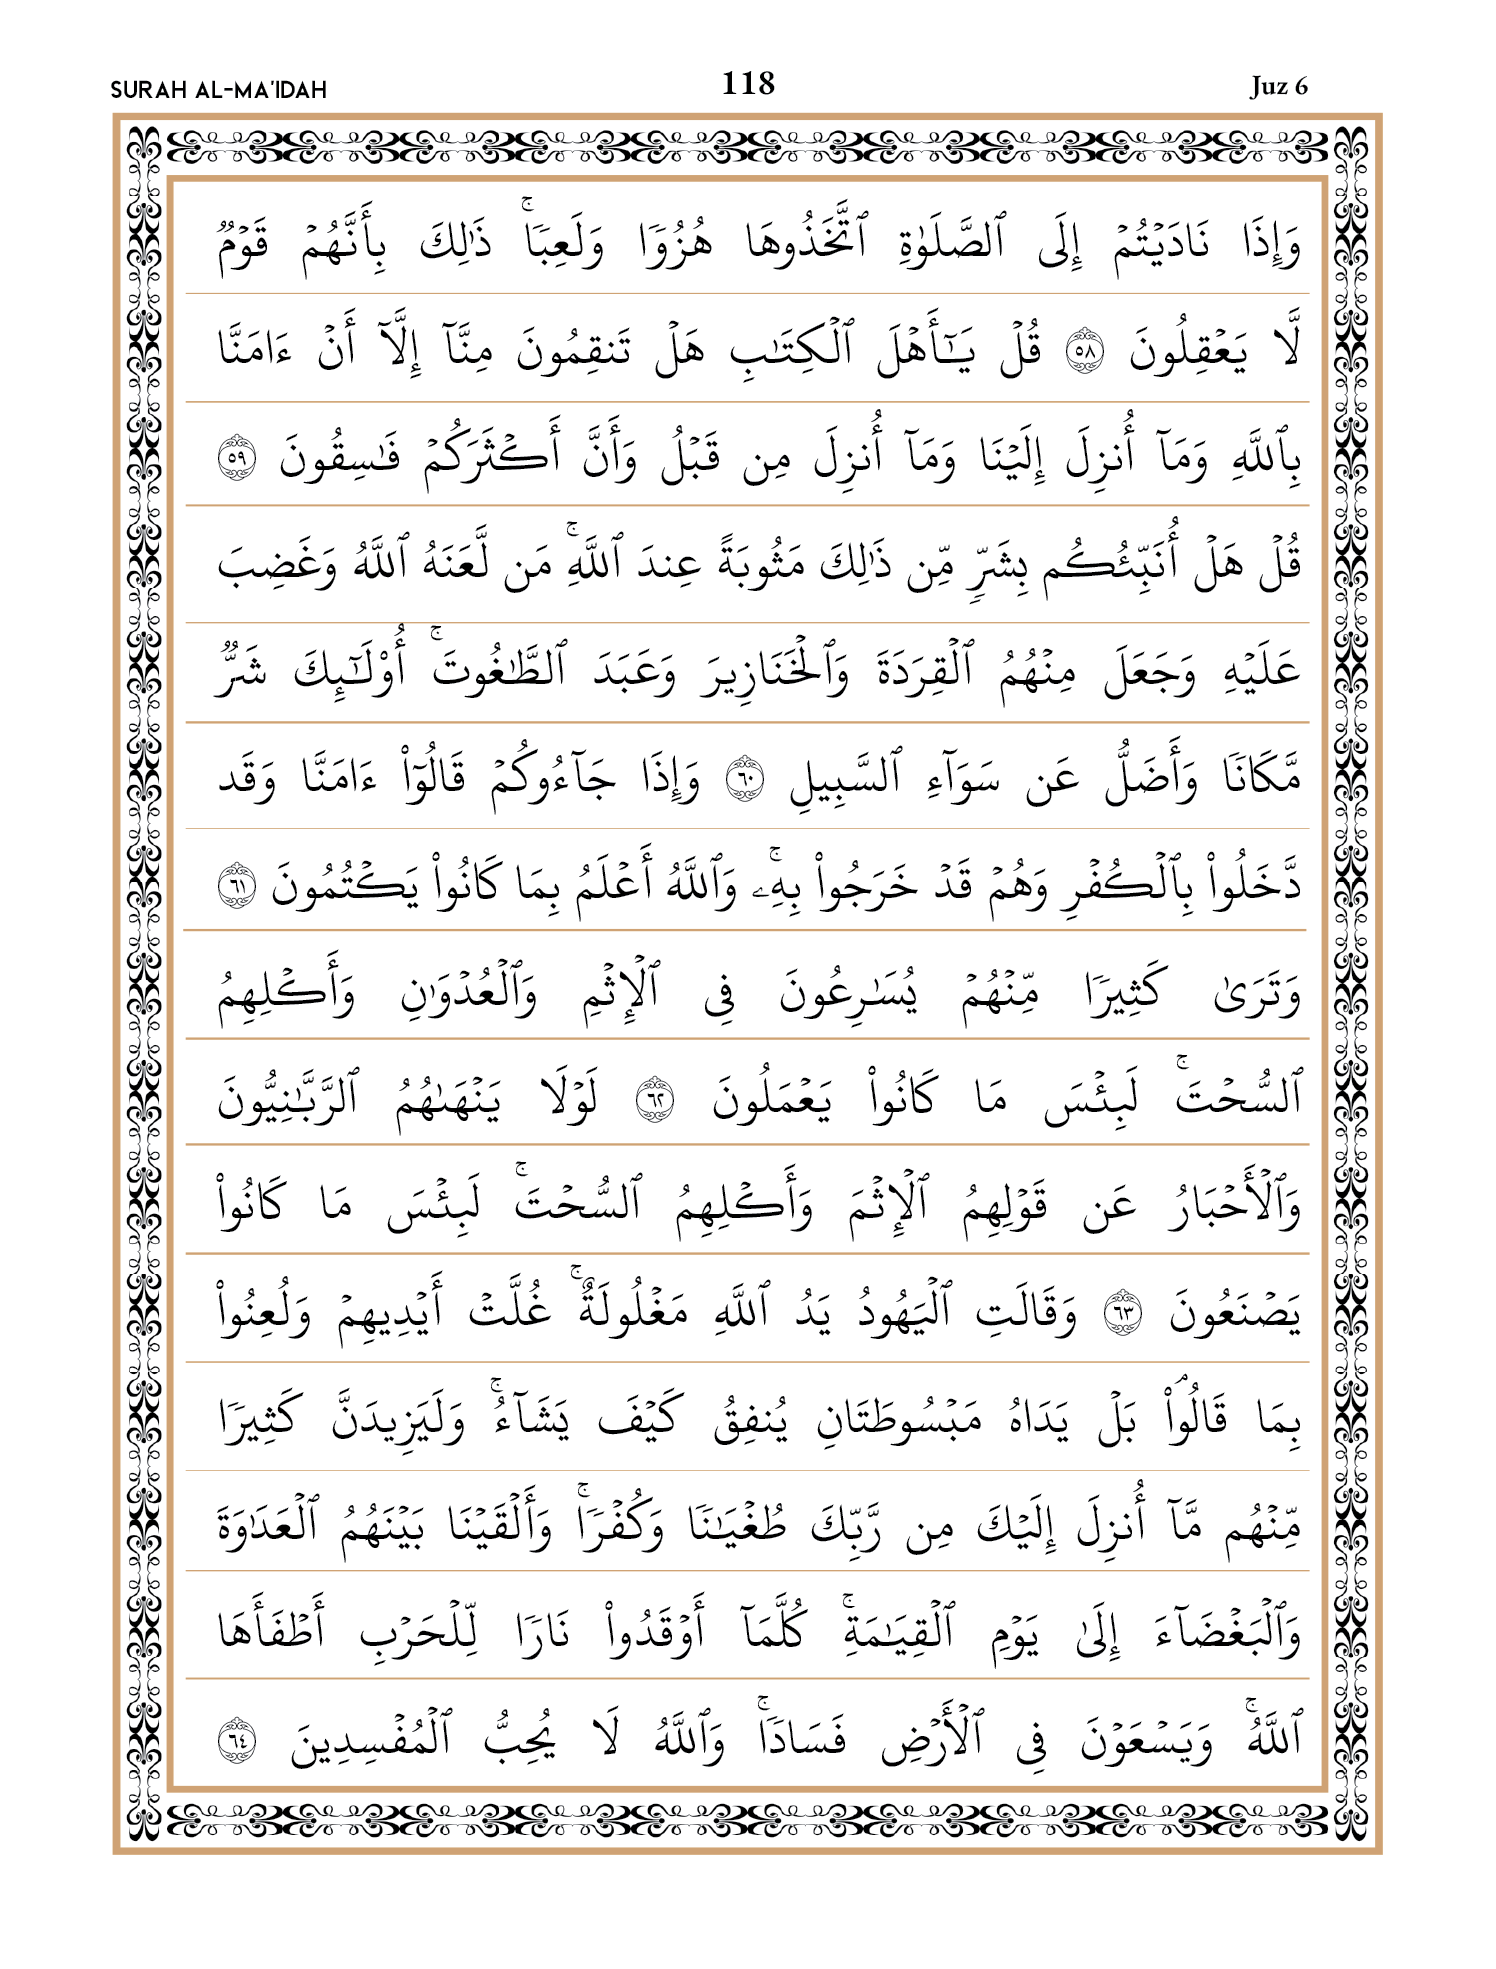 SURAH AL-MA'IDAH 118 Juz 6
وَإِذَا نَادَيْتُمْ إِلَى ٱلصَّلَوٰةِ ٱتَّخَذُوهَا هُزُوًا وَلَعِبًا ۚ ذَٰلِكَ بِأَنَّهُمْ قَوْمٌ
لَّا يَعْقِلُونَ ٥٨ قُلْ يَـٰٓأَهْلَ ٱلْكِتَـٰبِ هَلْ تَنقِمُونَ مِنَّآ إِلَّآ أَنْ ءَامَنَّا
بِٱللَّهِ وَمَآ أُنزِلَ إِلَيْنَا وَمَآ أُنزِلَ مِن قَبْلُ وَأَنَّ أَكْثَرَكُمْ فَـٰسِقُونَ ٥٩
قُلْ هَلْ أُنَبِّئُكُم بِشَرٍّ مِّن ذَٰلِكَ مَثُوبَةً عِندَ ٱللَّهِ ۚ مَن لَّعَنَهُ ٱللَّهُ وَغَضِبَ
عَلَيْهِ وَجَعَلَ مِنْهُمُ ٱلْقِرَدَةَ وَٱلْخَنَازِيرَ وَعَبَدَ ٱلطَّـٰغُوتَ ۚ أُو۟لَـٰٓئِكَ شَرٌّ
مَّكَانًا وَأَضَلُّ عَن سَوَآءِ ٱلسَّبِيلِ ٦٠ وَإِذَا جَآءُوكُمْ قَالُوٓا۟ ءَامَنَّا وَقَد
دَّخَلُوا۟ بِٱلْكُفْرِ وَهُمْ قَدْ خَرَجُوا۟ بِهِۦ ۚ وَٱللَّهُ أَعْلَمُ بِمَا كَانُوا۟ يَكْتُمُونَ ٦١
وَتَرَىٰ كَثِيرًا مِّنْهُمْ يُسَـٰرِعُونَ فِى ٱلْإِثْمِ وَٱلْعُدْوَٰنِ وَأَكْلِهِمُ
ٱلسُّحْتَ ۚ لَبِئْسَ مَا كَانُوا۟ يَعْمَلُونَ ٦٢ لَوْلَا يَنْهَىٰهُمُ ٱلرَّبَّـٰنِيُّونَ
وَٱلْأَحْبَارُ عَن قَوْلِهِمُ ٱلْإِثْمَ وَأَكْلِهِمُ ٱلسُّحْتَ ۚ لَبِئْسَ مَا كَانُوا۟
يَصْنَعُونَ ٦٣ وَقَالَتِ ٱلْيَهُودُ يَدُ ٱللَّهِ مَغْلُولَةٌ ۚ غُلَّتْ أَيْدِيهِمْ وَلُعِنُوا۟
بِمَا قَالُوا۟ ۘ بَلْ يَدَاهُ مَبْسُوطَتَانِ يُنفِقُ كَيْفَ يَشَآءُ ۚ وَلَيَزِيدَنَّ كَثِيرًا
مِّنْهُم مَّآ أُنزِلَ إِلَيْكَ مِن رَّبِّكَ طُغْيَـٰنًا وَكُفْرًا ۚ وَأَلْقَيْنَا بَيْنَهُمُ ٱلْعَدَٰوَةَ
وَٱلْبَغْضَآءَ إِلَىٰ يَوْمِ ٱلْقِيَـٰمَةِ ۚ كُلَّمَآ أَوْقَدُوا۟ نَارًا لِّلْحَرْبِ أَطْفَأَهَا
ٱللَّهُ ۚ وَيَسْعَوْنَ فِى ٱلْأَرْضِ فَسَادًا ۚ وَٱللَّهُ لَا يُحِبُّ ٱلْمُفْسِدِينَ ٦٤